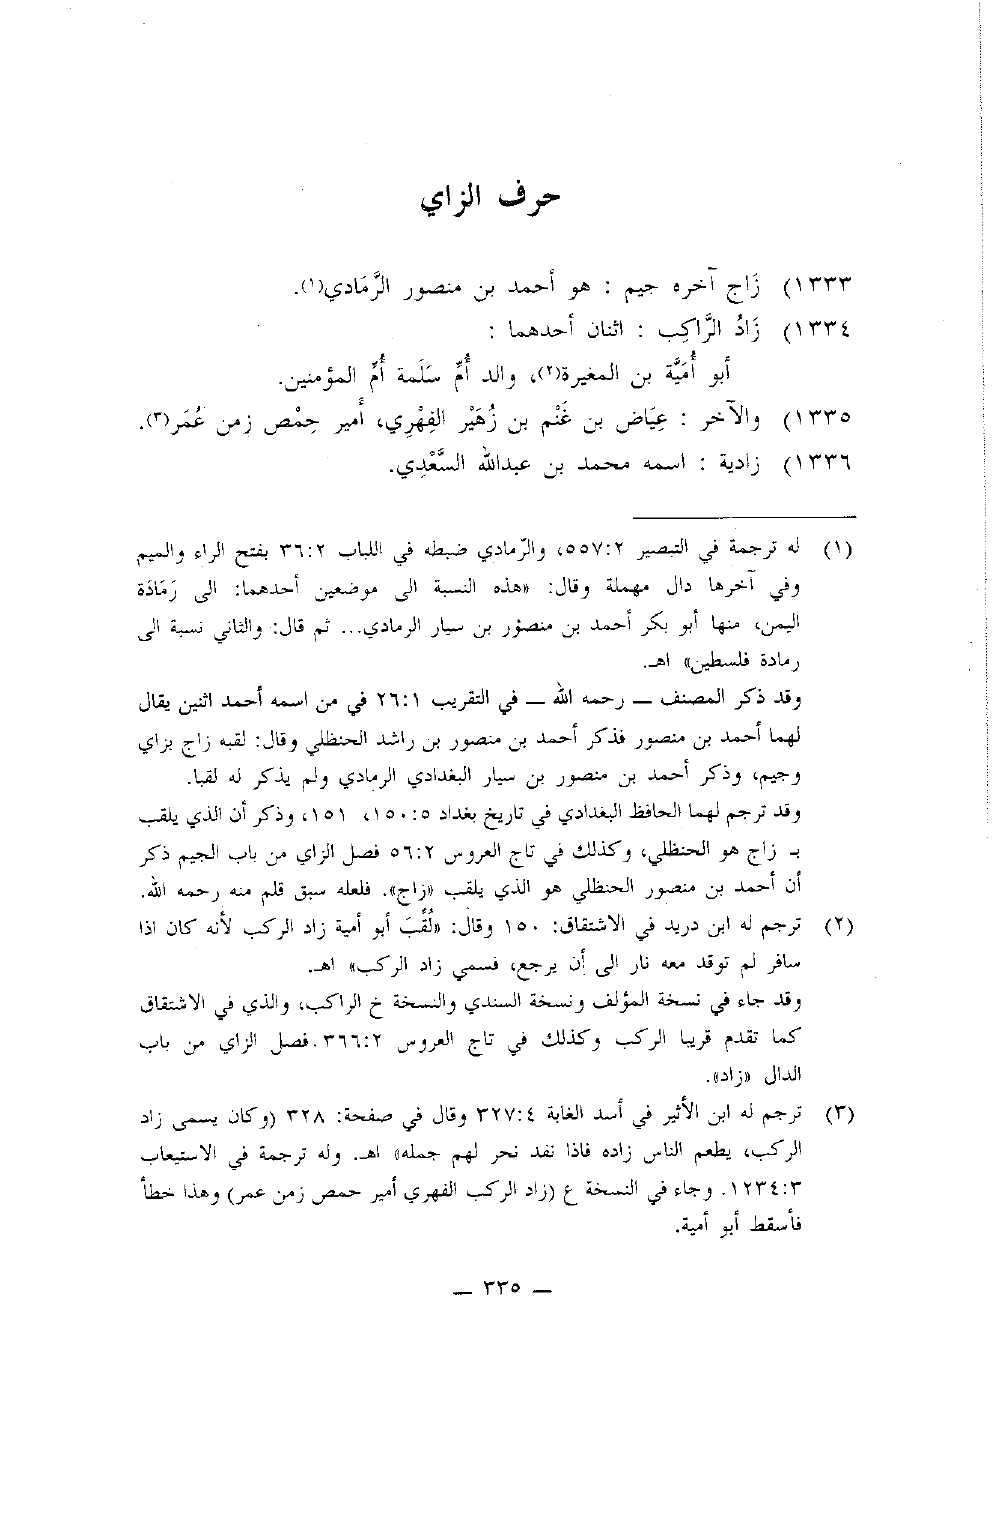 حرف الزاي
١٣٣٣) زَاج آخره جيم : هو أحمد بن منصور الرَّمَادي(١).
١٣٣٤) زَادُ الرَّاكِب : اثنان أحدهما :
أبو أُمَيَّة بن المغيرة(٢)، والد أُمِّ سَلَمة أُمِّ المؤمنين.
١٣٣٥) والآخر : عِيَاض بن غَنْم بن زُهَيْر الفِهْرِي، أمير حِمْص زمن عُمَر(٣).
١٣٣٦) زادية : اسمه محمد بن عبدالله السَّعْدِي.
(١) له ترجمة في التبصير ٥٥٧:٢، والرّمادي ضبطه في اللباب ٣٦:٢ بفتح الراء والميم
وفي آخرها دال مهملة وقال: «هذه النسبة الى موضعين أحدهما: الى رَمَادَة
اليمن، منها أبو بكر أحمد بن منصور بن سيار الرمادي... ثم قال: والثاني نسبة الى
رمادة فلسطين» اهـ.
وقد ذكر المصنف ــ رحمه الله ــ في التقريب ٢٦:١ في من اسمه أحمد اثنين يقال
لهما أحمد بن منصور فذكر أحمد بن منصور بن راشد الحنظلي وقال: لقبه زاج بزاي
وجيم، وذكر أحمد بن منصور بن سيار البغدادي الرمادي ولم يذكر له لقبا.
وقد ترجم لهما الحافظ البغدادي في تاريخ بغداد ١٥٠:٥، ١٥١، وذكر أن الذي يلقب
بـ زاج هو الحنظلي، وكذلك في تاج العروس ٥٦:٢ فصل الزاي من باب الجيم ذكر
أن أحمد بن منصور الحنظلي هو الذي يلقب «زاج». فلعله سبق قلم منه رحمه الله.
(٢) ترجم له ابن دريد في الاشتقاق: ١٥٠ وقال: «لُقِّبَ أبو أمية زاد الركب لأنه كان اذا
سافر لم توقد معه نار الى أن يرجع، فسمي زاد الركب» اهـ.
وقد جاء في نسخة المؤلف ونسخة السندي والنسخة خ الراكب، والذي في الاشتقاق
كما تقدم قريبا الركب وكذلك في تاج العروس ٣٦٦:٢. فصل الزاي من باب
الدال «زاد».
(٣) ترجم له ابن الأثير في أسد الغابة ٣٢٧:٤ وقال في صفحة: ٣٢٨ (وكان يسمى زاد
الركب، يطعم الناس زاده فاذا نفد نحر لهم جمله» اهـ. وله ترجمة في الاستيعاب
١٢٣٤:٣. وجاء في النسخة ع (زاد الركب الفهري أمير حمص زمن عمر) وهذا خطأ
فأسقط أبو أمية.
ــ ٣٣٥ ــ